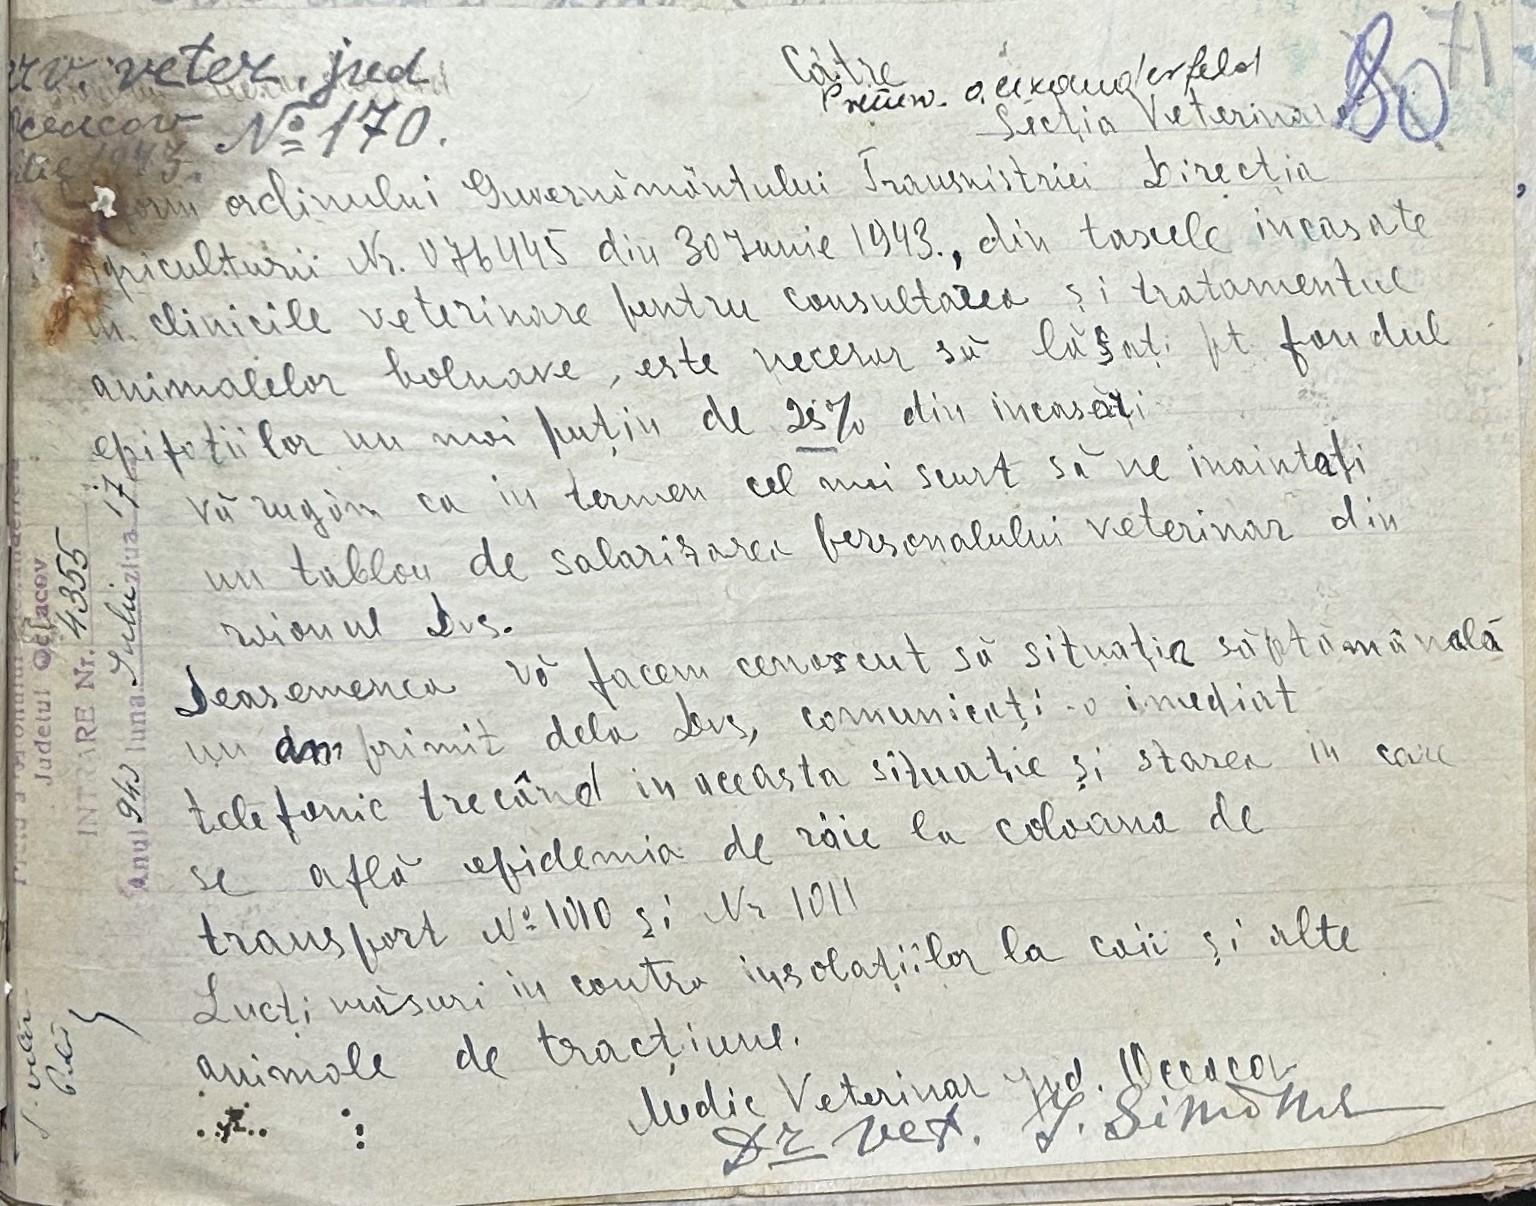 veter. jud
Nº 170.
Către
Secția Veterinară
80
71
ordinului Guvernământului Transnistriei Direcția
Agriculturii Nr. 076445 din 30 Iunie 1943., din taxele incasate
in clinicile veterinare pentru consultarea și tratamentul
animalelor bolnave, este necesar să lăsați pt fondul
epizotiilor nu mai puțin de 25% din incasări
Vă rugăm ca in termen cel mai scurt să ne inaintați
un tablou de salarizarea personalului veterinar din
raionul Dvs.
Deasemenea vă facem cunoscut că situația săptămânală
nu am primit dela Dvs, comunicați-o imediat
telefonic trecând in aceasta situație și starea in care
se află epidemia de râie la coloana de
transport Nº 1010 și Nr 1011
Lucți măsuri in contra insolațiilor la caii și alte
animale de tracțiune.
Medic Veterinar Jud. Oceacov
Dr vet. I. Simon
Judetul Oceacov
INTRARE Nr. 4355
Anul 943 luna Iulie ziua 17